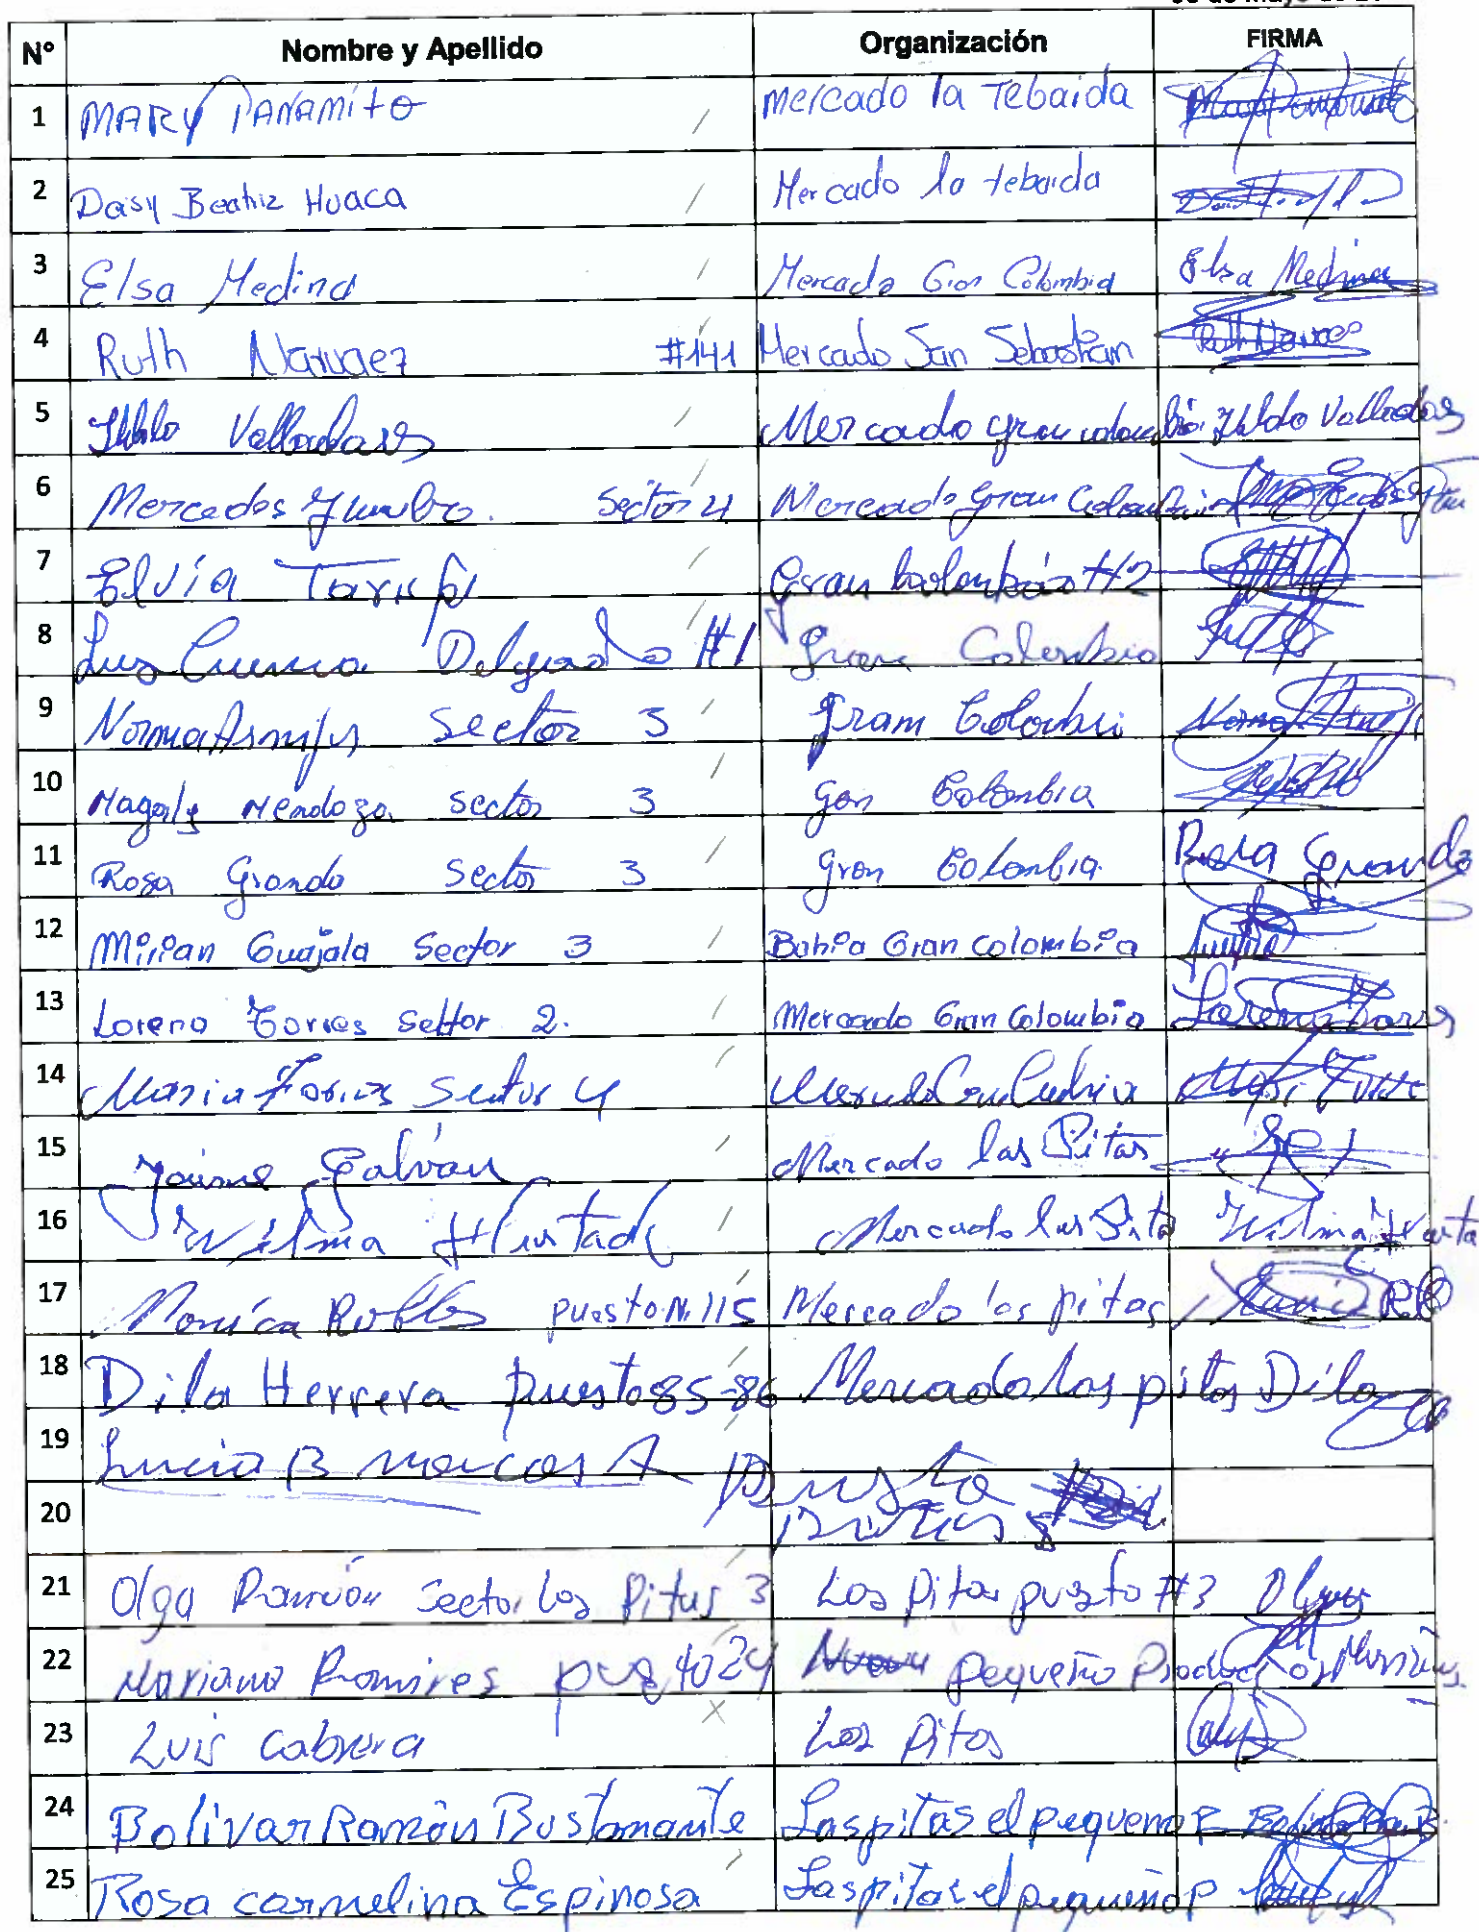 Nº Nombre y Apellido Organización FIRMA
1 MARY PANAMITO / Mercado la Tebaida
2 Daisy Beatriz Huaca / Mercado la tebaida
3 Elsa Medina / Mercado Gran Colombia Elsa Medina
4 Ruth Narvaez #141 Mercado San Sebastian Ruth Narvaez
5 Valladares / Mercado gran colombia Valladares
6 Mercedes Sector 4 Mercado Gran Colombia
7 Elvia / Gran Colombia #2
8 Luz Cuenca Delgado #1 Gran Colombia
9 Norma Armijos Sector 3 / Gram Colombi Norma
10 Magaly Mendoza sector 3 / Gran Colombia
11 Rosa Grando Sector 3 / Gran Colombia Rosa
12 Mirian Guajala Sector 3 / Bahia Gran Colombia
13 Lorena Torres Settor 2. / Mercado Gran Colombia Lorena Torres
14 Maria Sector 4 / Mercado
15 Jaime Galván / Mercado las Pitas
16 Wilma Hurtado / Mercado las Pitas Wilma
17 Monica Robles puesto N. 115 Mercado las pitas
18 Dila Herrera puesto 85-86 Mercado las pitas Dila
19 Lucia B A puesto
20 pitas
21 Olga Ramón Sector las Pitas 3 Las Pitas puesto #3 Olga
22 Mariana Ramires pequeño
23 Luis Cabrera Las Pitas
24 Bolivar Ramón Bustamante Las pitas el pequeño P
25 Rosa carmelina Espinosa / Las pitas el pequeño P